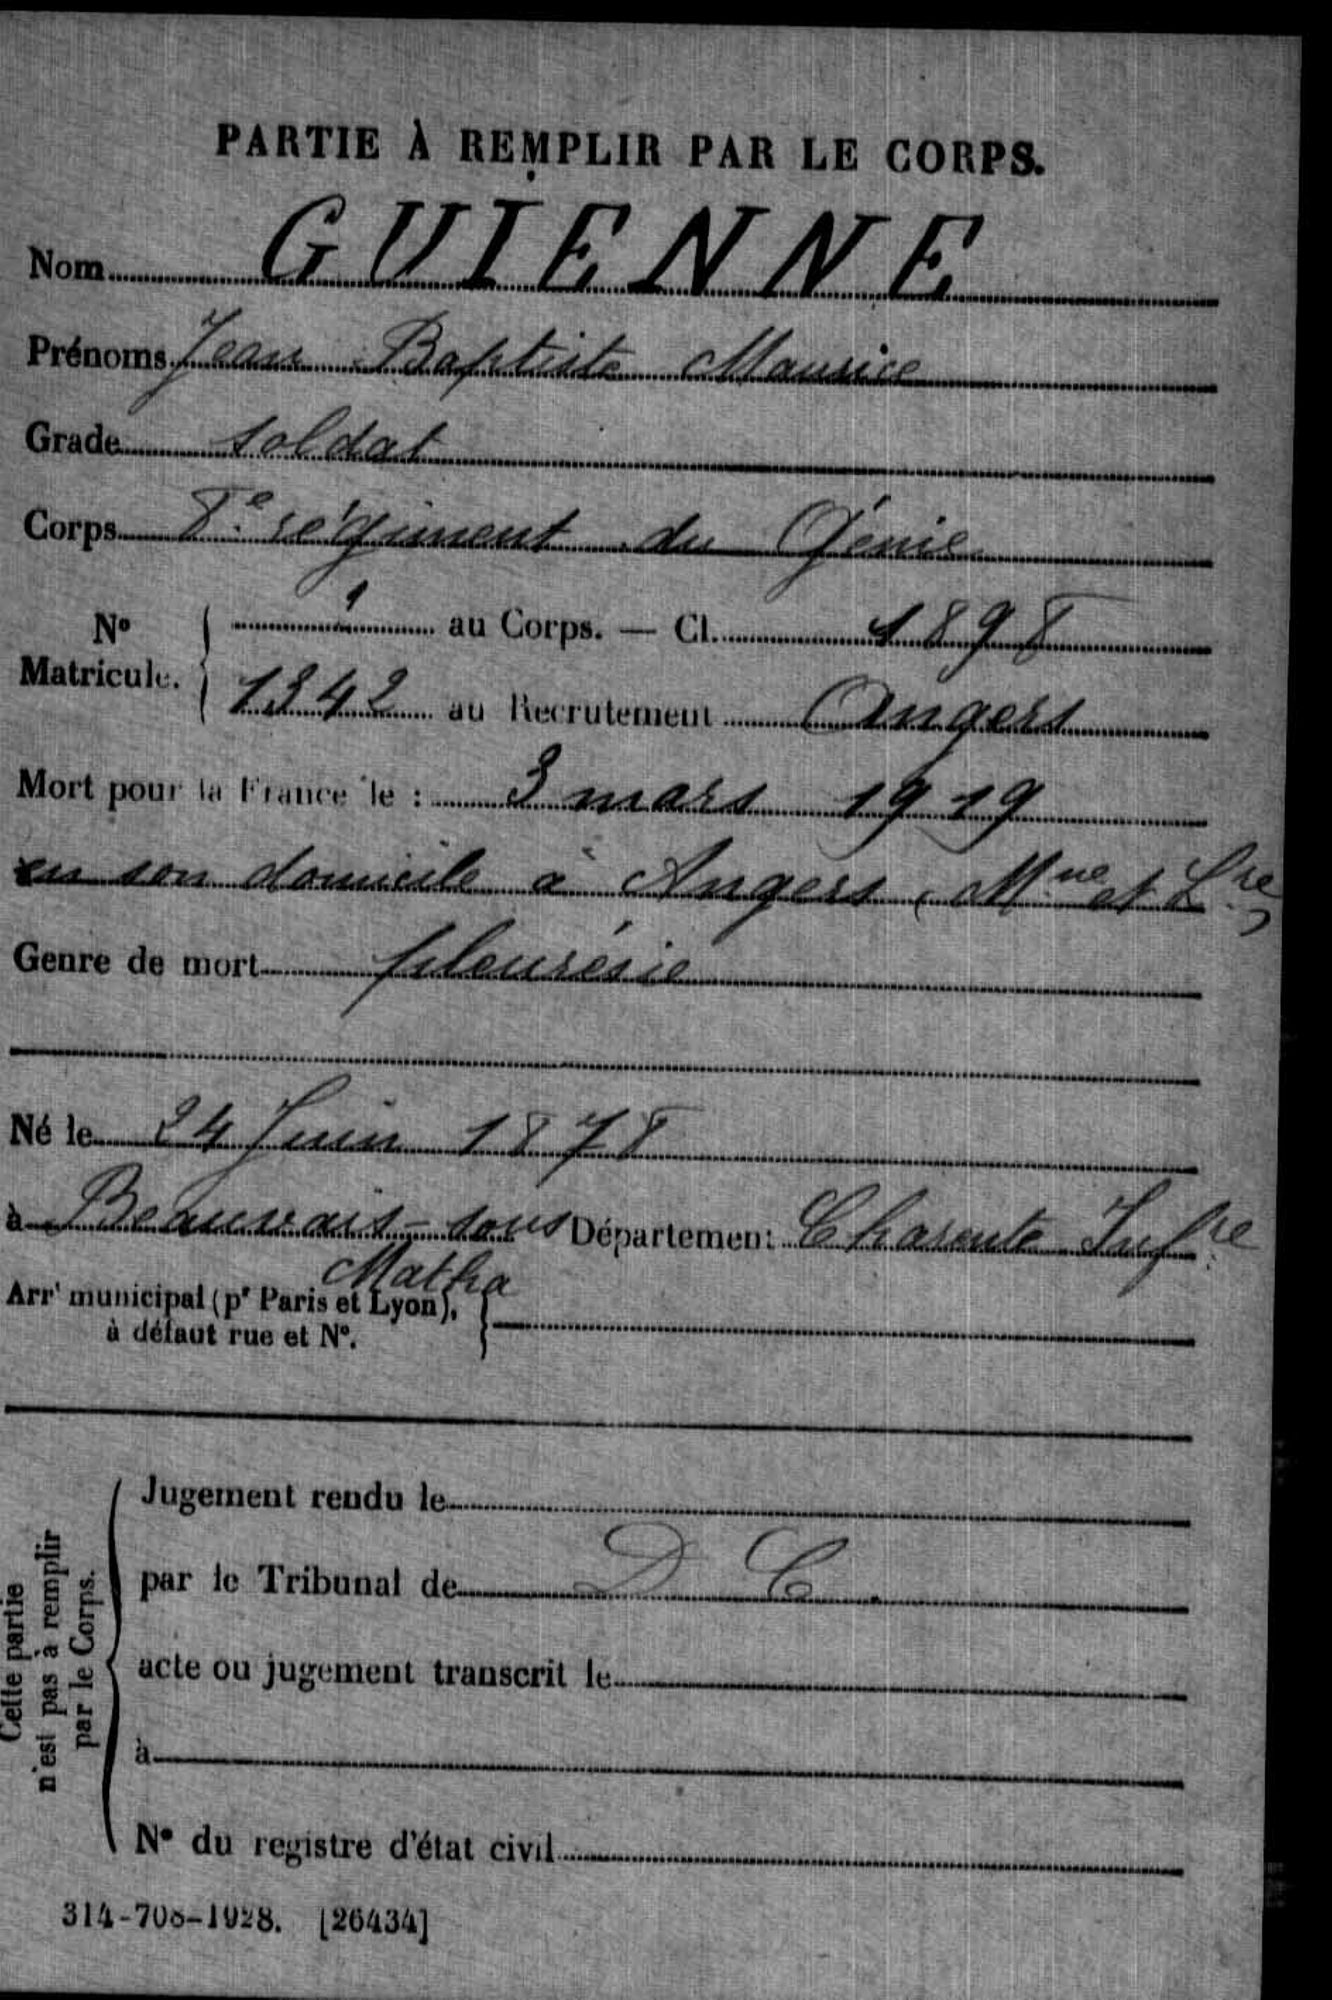 PARTIE À REMPLIR PAR LE CORPS.
Nom GUIENNE
Prénoms Jean Baptiste Maurice
Grade soldat
Corps 8e régiment du Génie
No Matricule. { au Corps. — Cl. 1898
1342 au Recrutement Angers
Mort pour la France le : 3 mars 1919
en son domicile à Angers (Mne et Lre)
Genre de mort pleurésie
Né le 24 Juin 1878
à Beauvais-sous Matha Département Charente Infre
Arrt municipal (pr Paris et Lyon), à défaut rue et No. }
Cette partie n'est pas à remplir par le Corps.
Jugement rendu le
par le Tribunal de D C.
acte ou jugement transcrit le
à
No du registre d'état civil
314-708-1928. [26434]